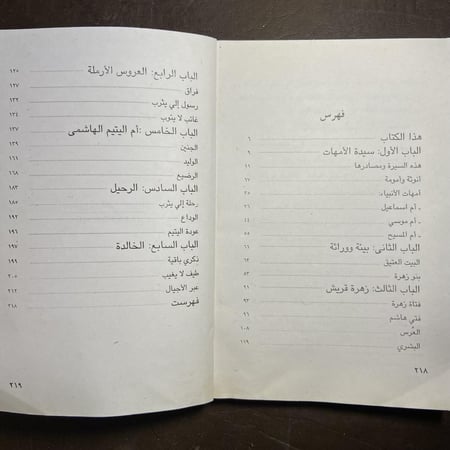 فهرس
هذا الكتاب ٦
الباب الأول: سيدة الأمهات ٩
هذه السيرة ومصادرها ١١
أنوثة وأمومة
أمهات الأنبياء: ٢٥
ـ أم اسماعيل ٢٦
ـ أم موسي
ـ أم المسيح ٥٥
الباب الثانى: بيئة ووراثة ٦١
البيت العتيق
بنو زهرة ٨٣
الباب الثالث: زهرة قريش ٩١
فتاة زهرة
فتي هاشم ٩٦
العُرس ١٠٨
البشري ١١٩
٢١٨
الباب الرابع: العروس الأرملة ١٢٥
فراق ١٢٧
رسول إلي يثرب ١٣٣
غائب لا يئوب ١٣٤
الباب الخامس :أم اليتيم الهاشمى ١٣٧
الجنين ١٣٩
الوليد ١٦١
الرضيع ١٦٨
الباب السادس: الرحيل ١٨٣
رحلة إلي يثرب ١٨٥
الوداع ١٩٢
عودة اليتيم ١٩٦
الباب السابع: الخالدة ١٩٧
ذكري باقية ١٩٩
طيف لا يغيب ٢٠٥
عبر الأجيال ٢١٢
فهرست ٢١٨
٢١٩